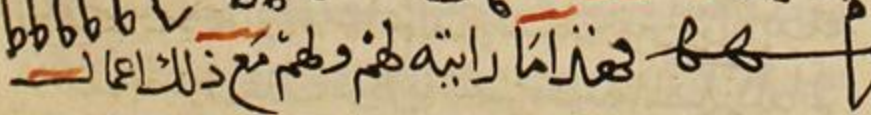 فهذا ما رايته لهم ولهم مع ذلك اعمال